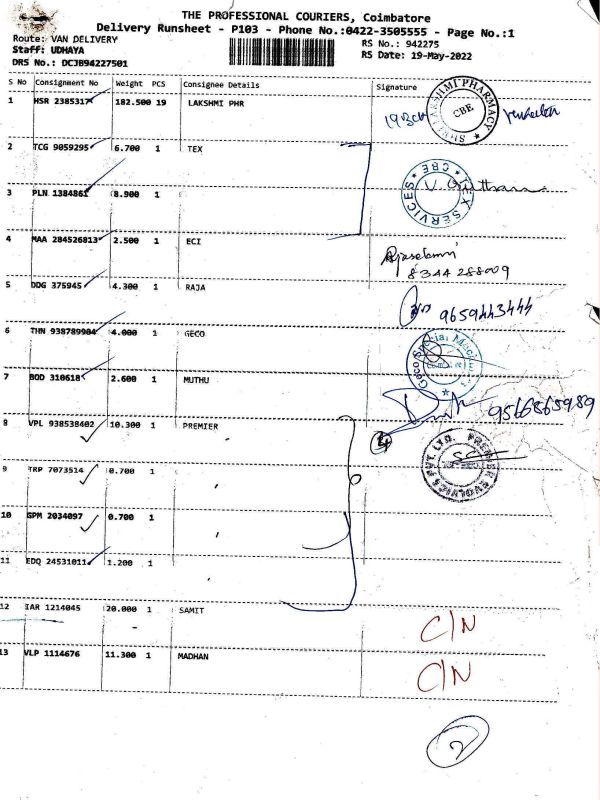 THE PROFESSIONAL COURIERS, Coimbatore
Delivery Runsheet - P103 - Phone No.:0422-3505555 - Page No.:1
Route: VAN DELIVERY
RS No.: 942275
Staff: UDHAYA
RS Date: 19-May-2022
DRS No.: DCJB94227501
S No Consignment No Weight PCS Consignee Details Signature
1 HSR 2385317 182.500 19 LAKSHMI PHR
LAKSHMI PHARMACY CBE
2 TCG 9059295 6.700 1 TEX
3 PLN 1384861 8.900 1
TEX SERVICES CBE
4 MAA 284526813 2.500 1 ECI
8344288009
5 DDG 375945 4.300 1 RAJA
9659443444
6 THN 938789904 4.000 1 GECO
Geco
7 BOD 310618 2.600 1 MUTHU
9566865989
8 VPL 938538402 10.300 1 PREMIER
PREMIER EVOLVICS PVT. LTD.
9 TRP 7073514 0.700 1 "
10 SPM 2034097 0.700 1 "
11 EDQ 24531011 1.200 1 "
12 IAR 1214045 20.000 1 SAMIT
C/N
13 VLP 1114676 11.300 1 MADHAN
C/N
2